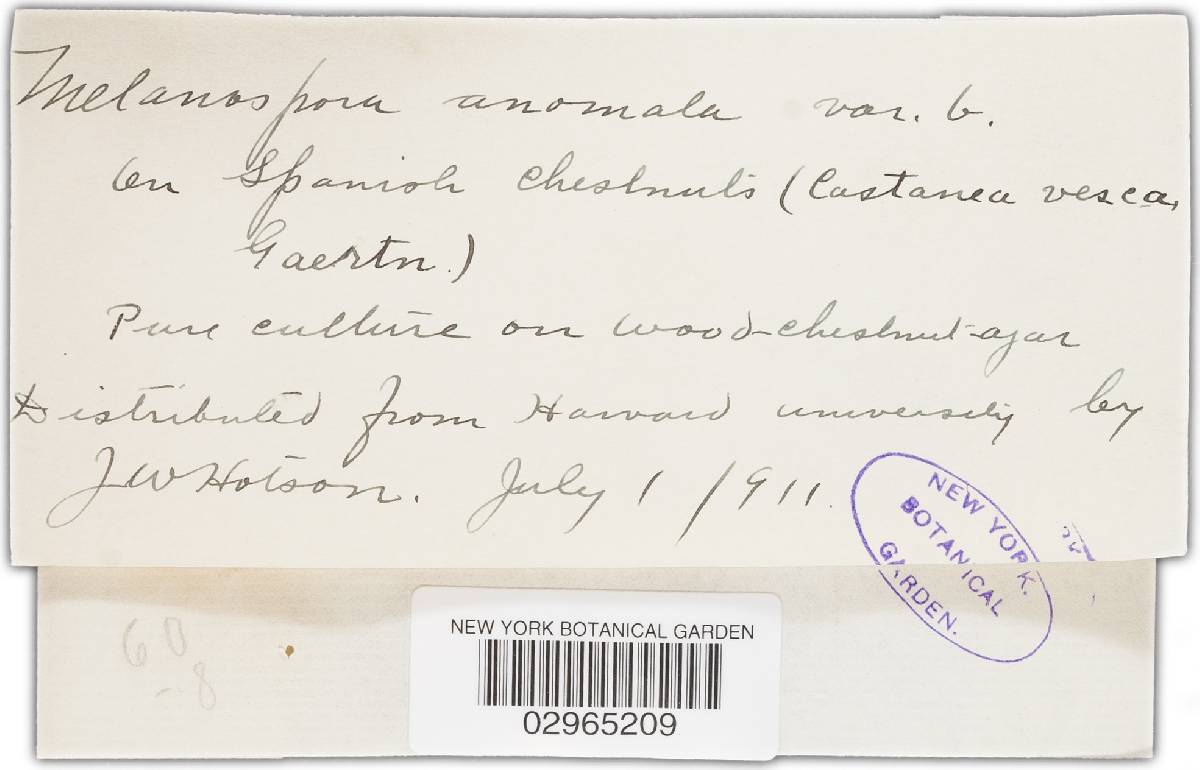 Melanospora anomala var. b.
On Spanish chestnuts (Castanea vesca,
Gaertn.)
Pure culture on wood-chestnut-agar
Distributed from Harvard university by
J W Hotson. July 1 1911.
NEW YORK
BOTANICAL
GARDEN.
60
-8
NEW YORK BOTANICAL GARDEN
02965209